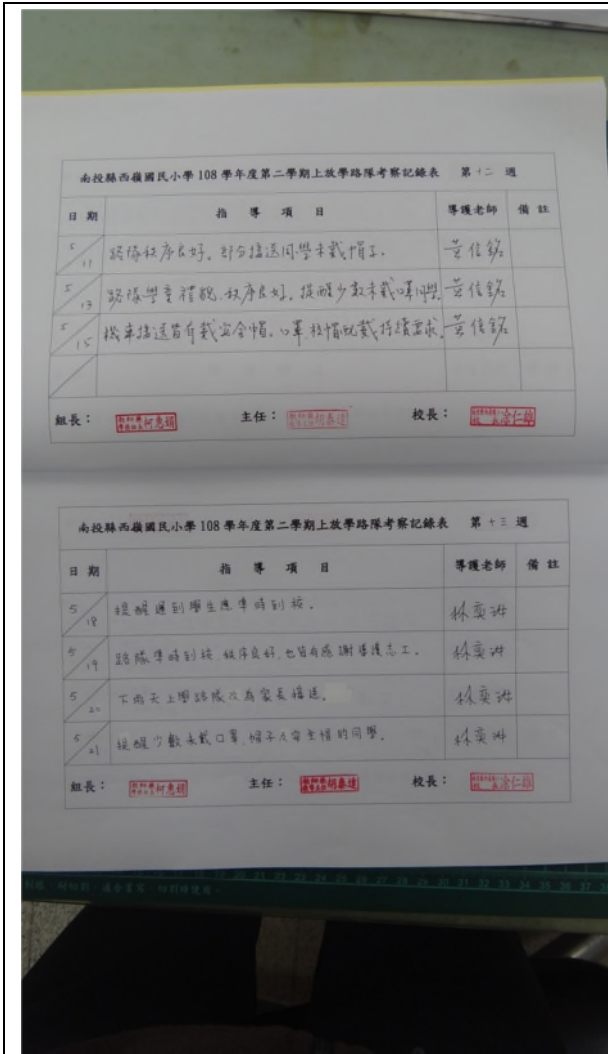 南投縣西嶺國民小學 108 學年度第二學期上放學路隊考察記錄表 第 十二 週
日 期 指 導 項 目 導護老師 備 註
5/11 路隊秩序良好。部分接送同學未戴帽子。 黃信銘
5/13 路隊學童禮貌、秩序良好。提醒少數未戴口罩同學 黃信銘
5/15 機車接送皆有戴安全帽。口罩、校帽配戴持續要求。 黃信銘
組長： 柯惠娟 主任： 胡泰達 校長： 涂仁雄
南投縣西嶺國民小學 108 學年度第二學期上放學路隊考察記錄表 第 十三 週
日 期 指 導 項 目 導護老師 備 註
5/18 提醒遲到學生應準時到校。 林奕
5/19 路隊準時到校、秩序良好，也皆有感謝導護志工。 林奕
5/20 下雨天上學路隊改為家長接送。 林奕
5/21 提醒少數未戴口罩、帽子及安全帽的同學。 林奕
組長： 柯惠娟 主任： 胡泰達 校長： 涂仁雄